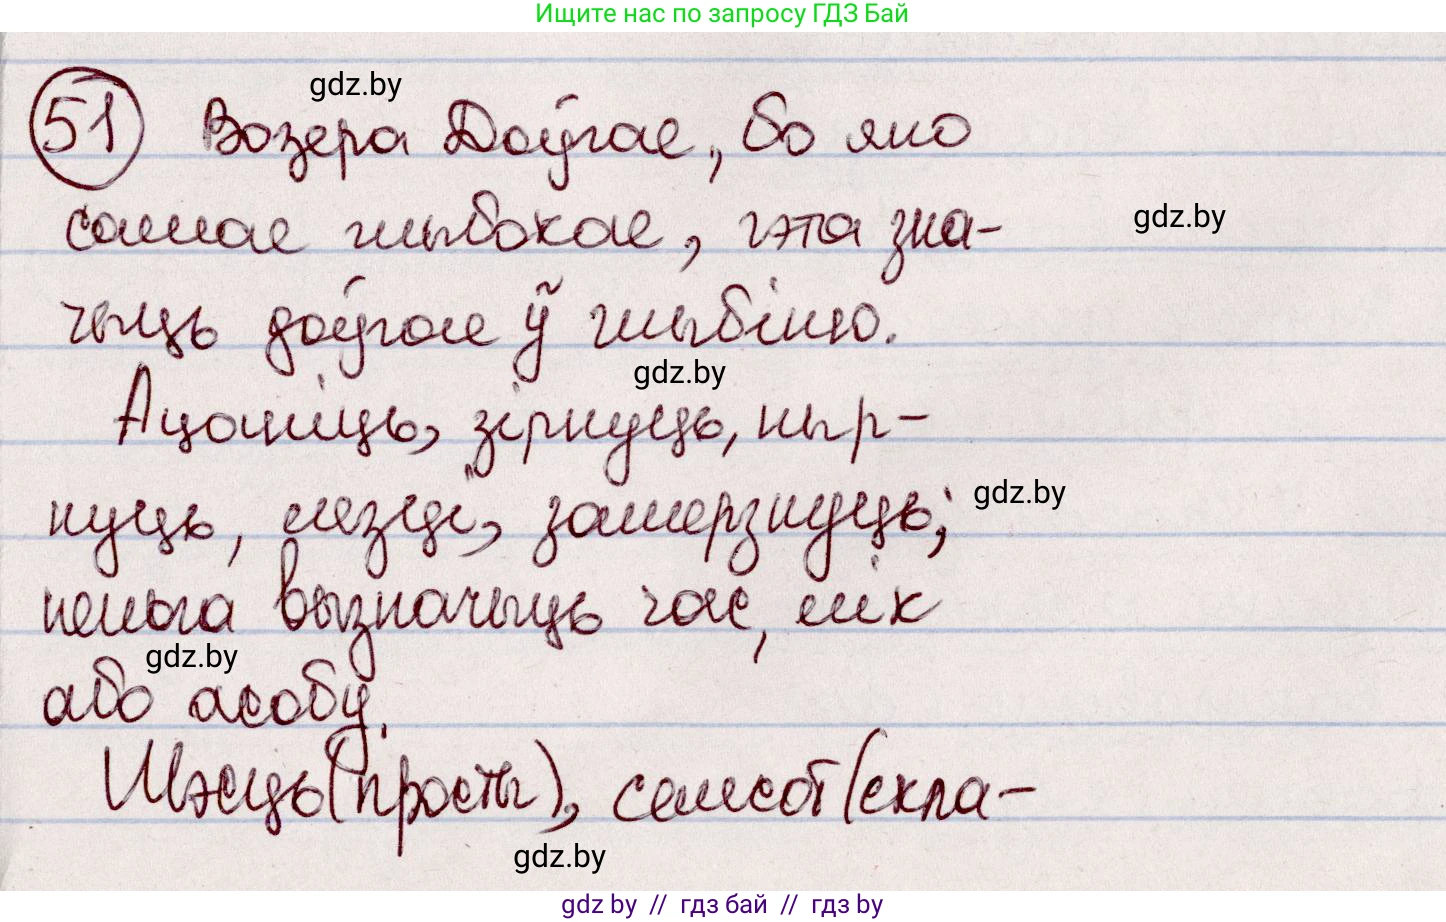 Ищите нас по запросу ГДЗ Бай
gdz.by
51 Возера Доўгае, бо яно
самае глыбокае, гэта зна-
gdz.by
чыць доўгае ў глыбіню.
gdz.by
Ацаніць, зірнуць, ныр-
нуць, лезці, замерзнуць;
gdz.by
нельга вызначыць час, лік
gdz.by
або асобу.
Шэсць (просты), семсот (скла-
gdz.by
gdz by // гдз бай // гдз by